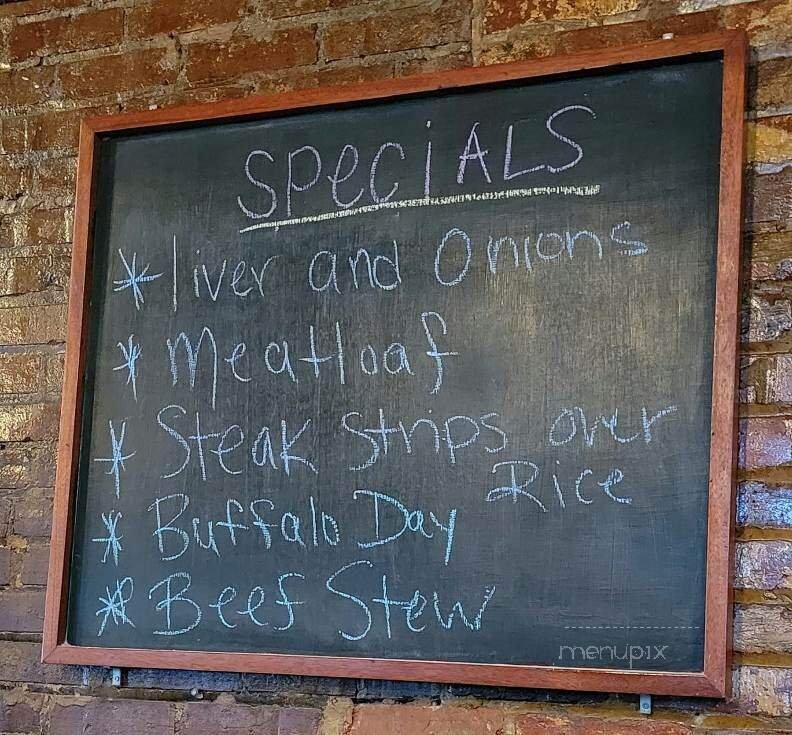 SPeCiALS
* liver and Onions
* Meatloaf
* Steak Strips over
Rice
* Buffalo Day
* Beef Stew
menupix